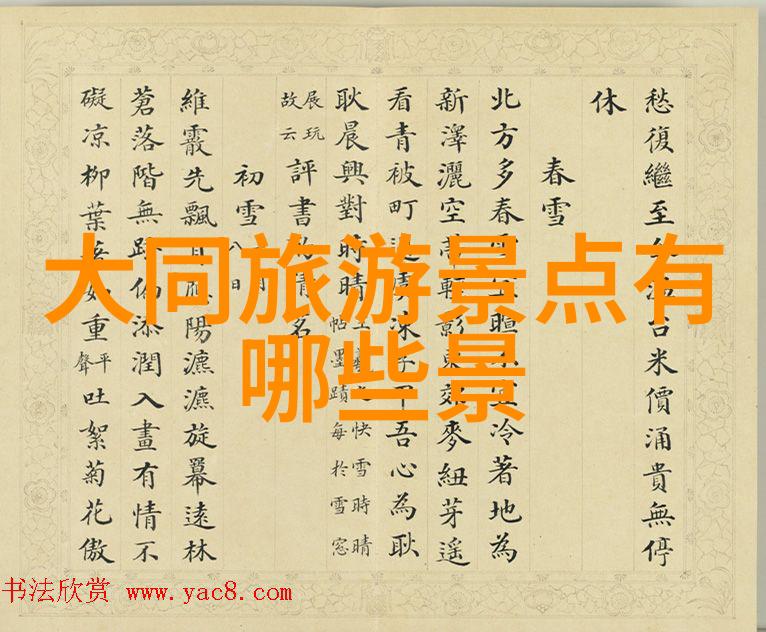 大同旅游景点有
哪些景
愁復繼至米價涌貴無停
休
春雪
北方多春冷著地為
新澤灑空麥紐芽遥
看青被町吾心為耿
耿晨興對時晴
快雪時晴
帖墨蹟每於雪窓
展玩
故云
評書名
初雪
維霰先飄陽瀌瀌旋羃遠林
蒼落階無添潤入畫有情不
礙凉柳葉如重平聲吐絮菊花傲
书法欣赏 www.yac8.com